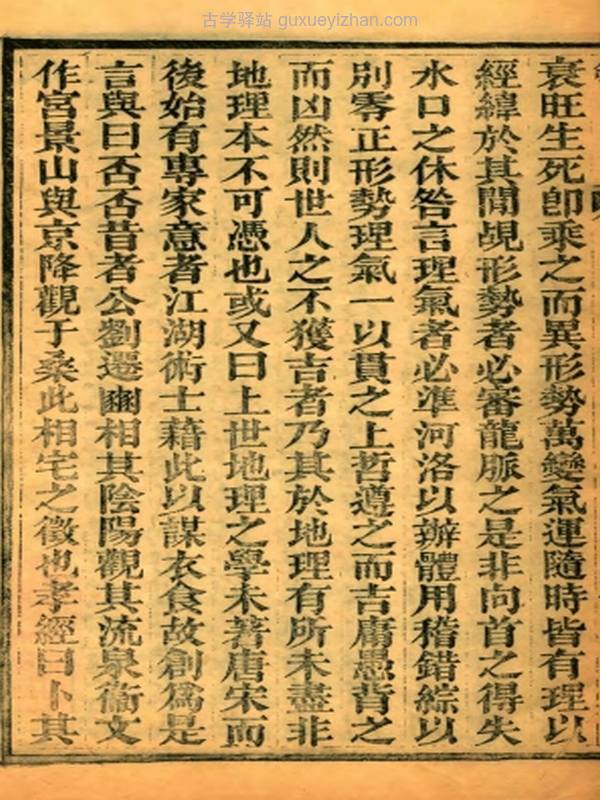 古学驿站 guxueyizhan.com
衰旺生死卽乘之而異形勢萬變氣運隨時皆有理以
經緯於其間覘形勢者必審龍脈之是非向首之得失
水口之休咎言理氣者必準河洛以辦體用稽錯綜以
別零正形勢理氣一以貫之上哲遵之而吉庸愚背之
而凶然則世人之不獲吉者乃其於地理有所未盡非
地理本不可憑也或又曰上世地理之學未著唐宋而
後始有專家意者江湖術士藉此以謀衣食故創爲是
言與曰否否昔者公劉遷豳相其陰陽觀其流泉衞文
作宮景山與京降觀于桑此相宅之徵也孝經曰卜其